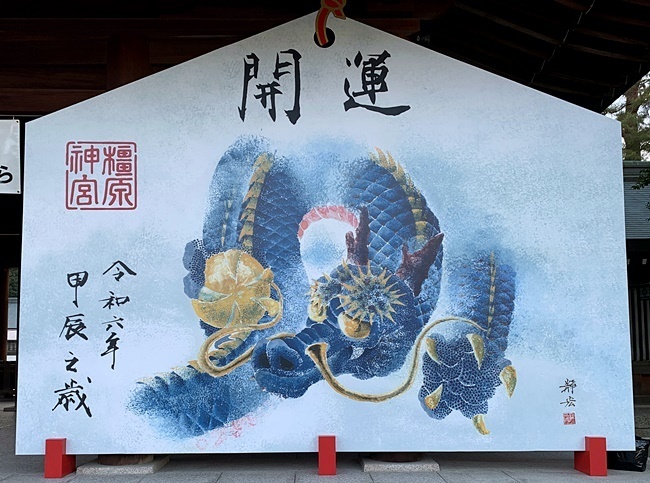 開運
橿原
神宮
令和六年
甲辰之歳
ら